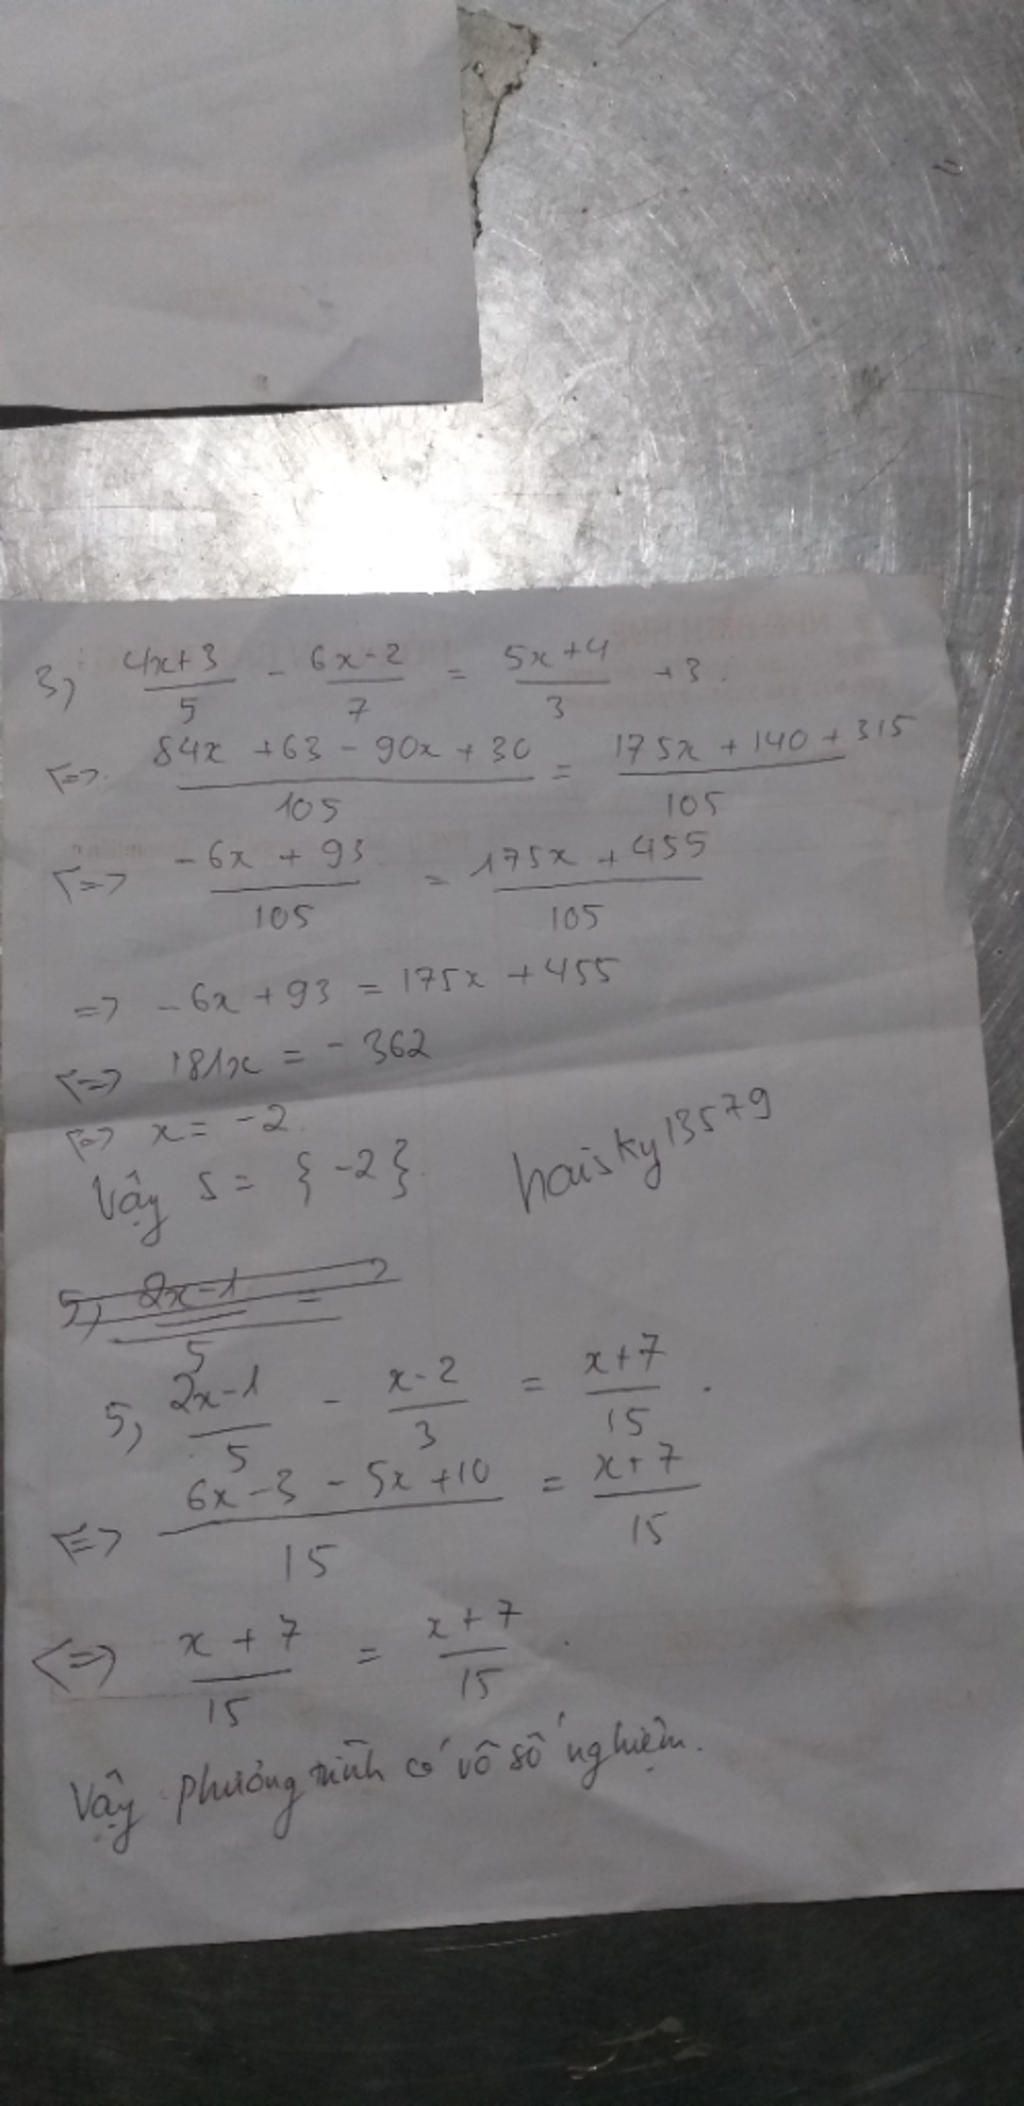 3, (4x+3)/5 - (6x-2)/7 = (5x+4)/3 +3.
<=> (84x +63 - 90x + 30)/105 = (175x + 140 + 315)/105
<=> (-6x + 93)/105 = (175x + 455)/105
=> -6x + 93 = 175x + 455
<=> 181x = -362
<=> x = -2.
Vậy S = {-2}.
haisky13579
5, (2x-1)/5 =
5, (2x-1)/5 - (x-2)/3 = (x+7)/15.
<=> (6x-3 - 5x+10)/15 = (x+7)/15
<=> (x+7)/15 = (x+7)/15.
Vậy phương trình có vô số nghiệm.